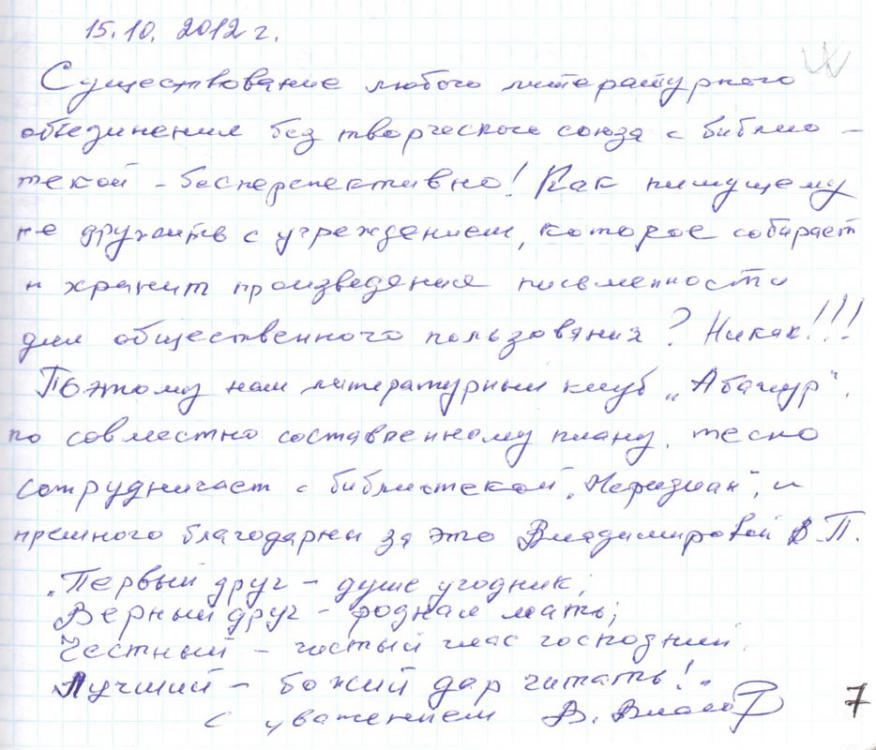 15.10.2012 г.
Существование любого литературного
объединения без творческого союза с библио-
текой - бесперспективно! Как пишущему
не дружить с учреждением, которое собирает
и хранит произведения письменности
для общественного пользования? Никак!!!
Поэтому наш литературный клуб „Абажур",
по совместно составленному плану, тесно
сотрудничает с библиотекой „Меридиан", и
премного благодарны за это Владимировой В.П.
„Первый друг - душе угодник;
Верный друг - родная мать;
Честный - чистый глас господний.
Лучший - божий дар читать!"
С уважением В.
7